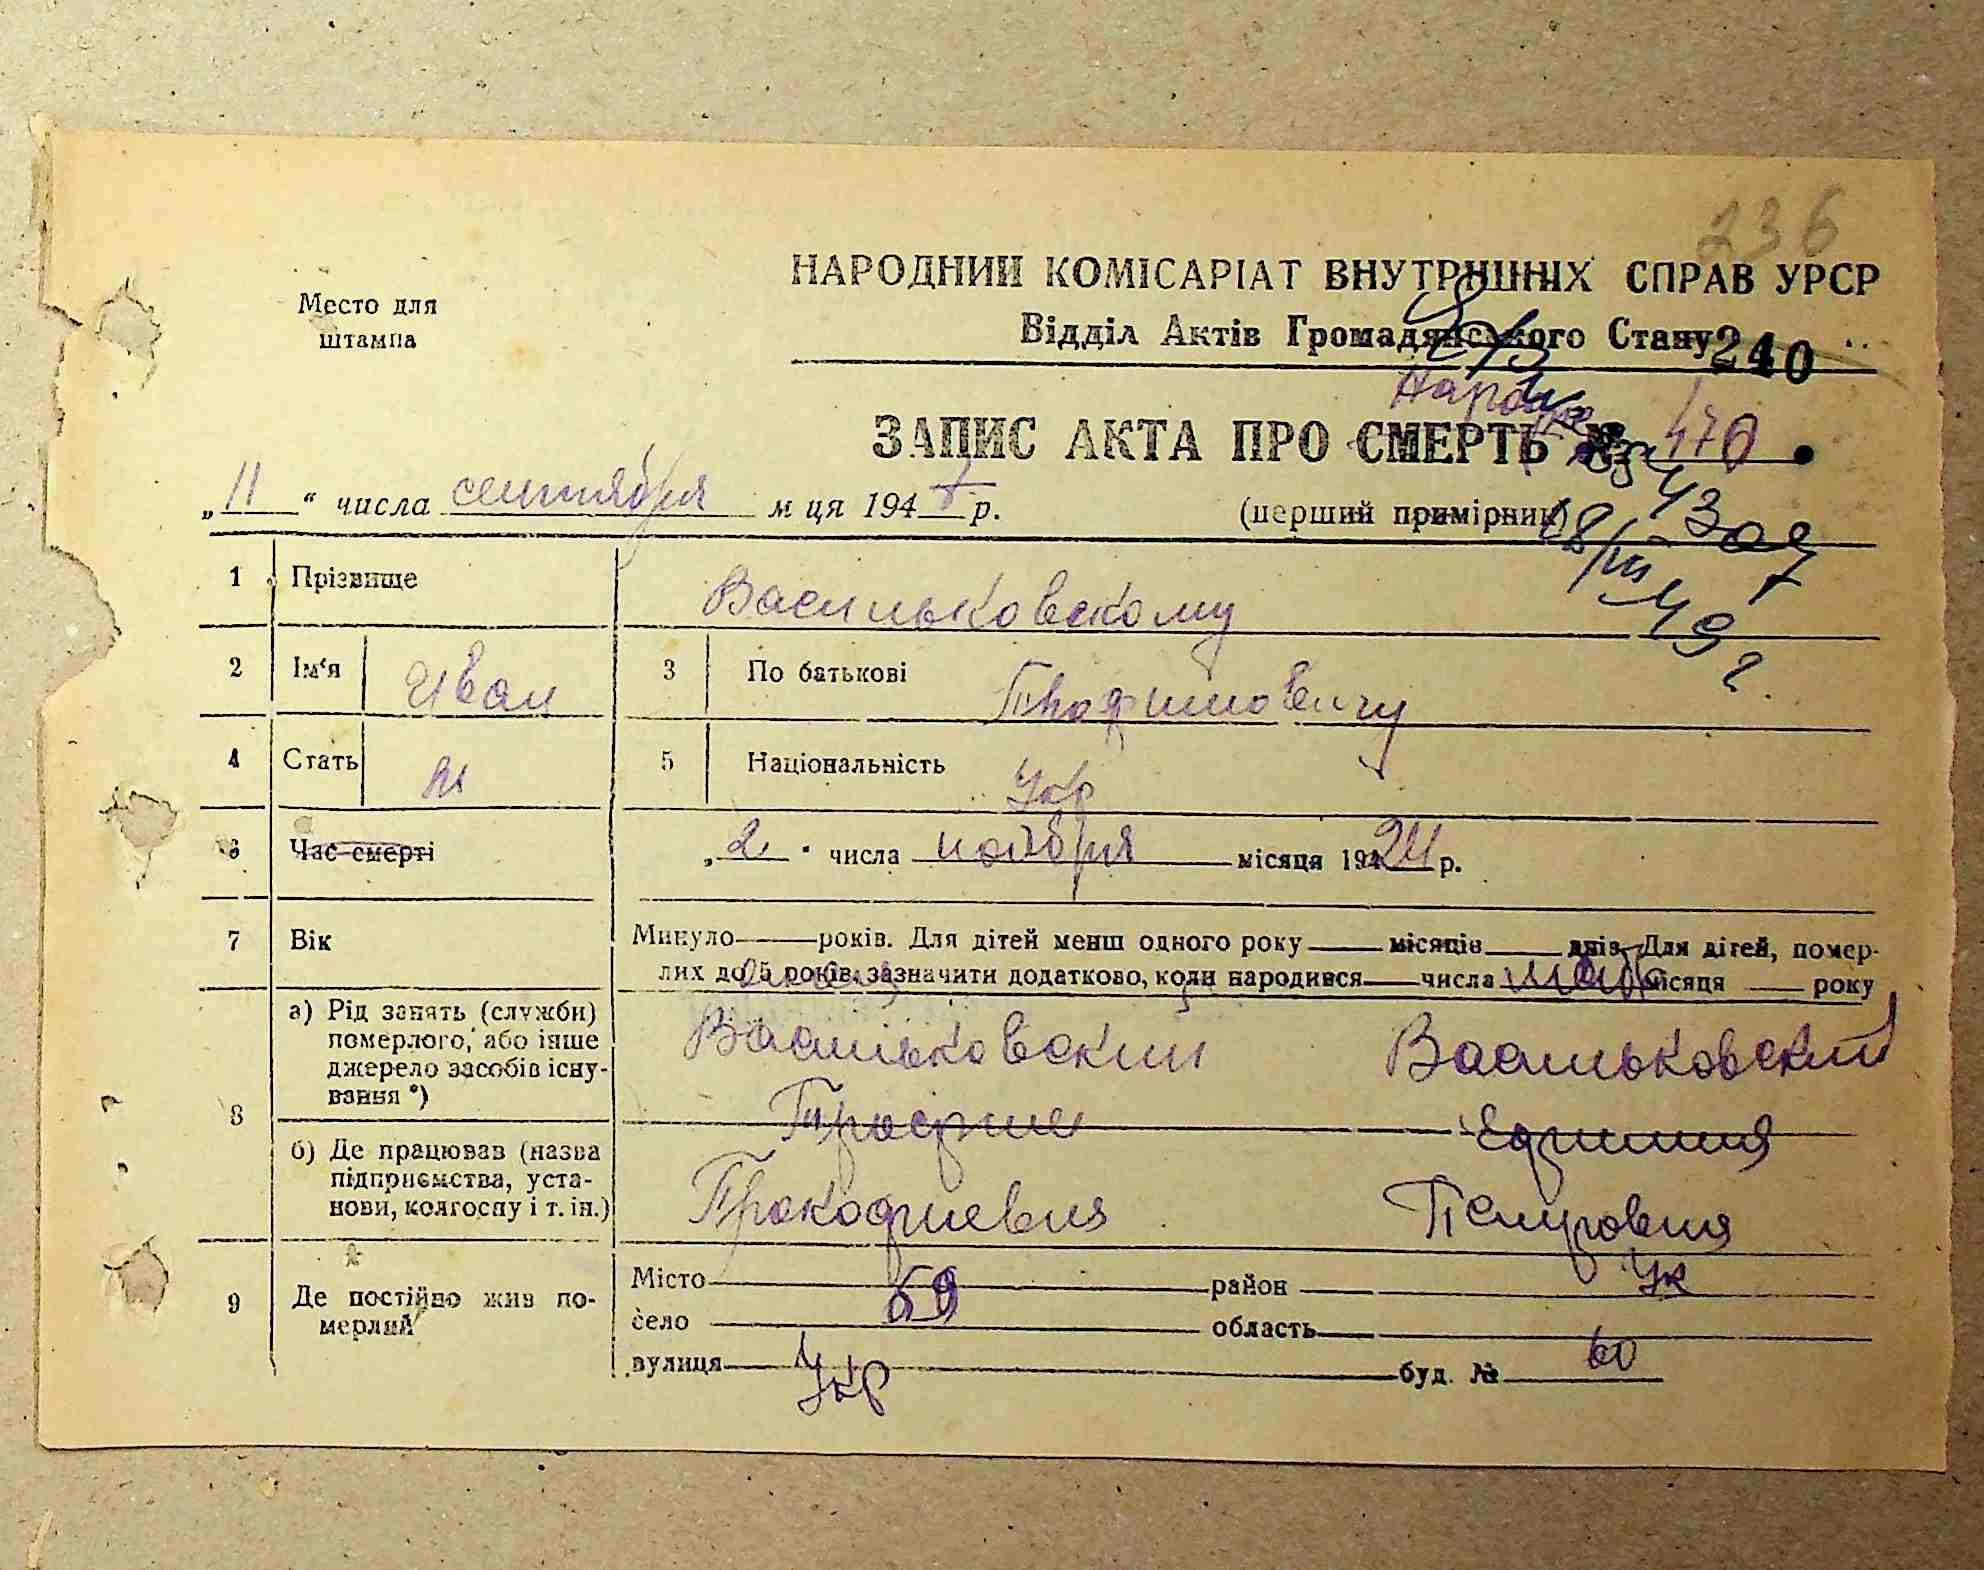 236
НАРОДНИЙ КОМІСАРІАТ ВНУТРІШНІХ СПРАВ УРСР
Место для
штампа
Відділ Актів Громадянського Стану 240
ЗАПИС АКТА ПРО СМЕРТЬ № 470
„11“ числа сентября м ця 194 р.
(перший примірник)
1 Прізвище Васильковскому
2 Ім'я Иван 3 По батькові
4 Стать м 5 Національність Укр
6 Час смерті „2“ числа ноября місяця 1924 р.
7 Вік Минуло років. Для дітей менш одного року місяців днів. Для дітей, помер-
лих до 5 років, зазначити додатково, коли народився числа місяця року
8 а) Рід занять (служби)
померлого, або інше
джерело засобів існу-
вання *)
Васильковский Васильковский
б) Де працював (назва
підприємства, уста-
нови, колгоспу і т. ін.)
Прокофиевич Петровня
9 Де постійно жив по-
мерлий
Місто район Ук
село 59 область
вулиця Укр буд. № 60